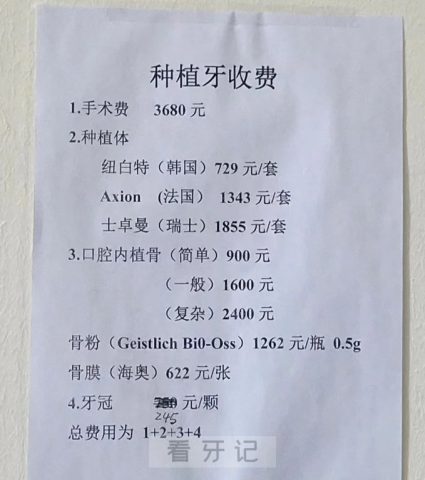 种植牙收费
1.手术费 3680 元
2.种植体
纽白特（韩国）729 元/套
Axion （法国） 1343 元/套
士卓曼（瑞士）1855 元/套
3.口腔内植骨（简单）900 元
（一般）1600 元
（复杂）2400 元
骨粉（Geistlich Bi0-Oss）1262 元/瓶 0.5g
骨膜（海奥）622 元/张
4.牙冠 元/颗
245
总费用为 1+2+3+4
看牙记